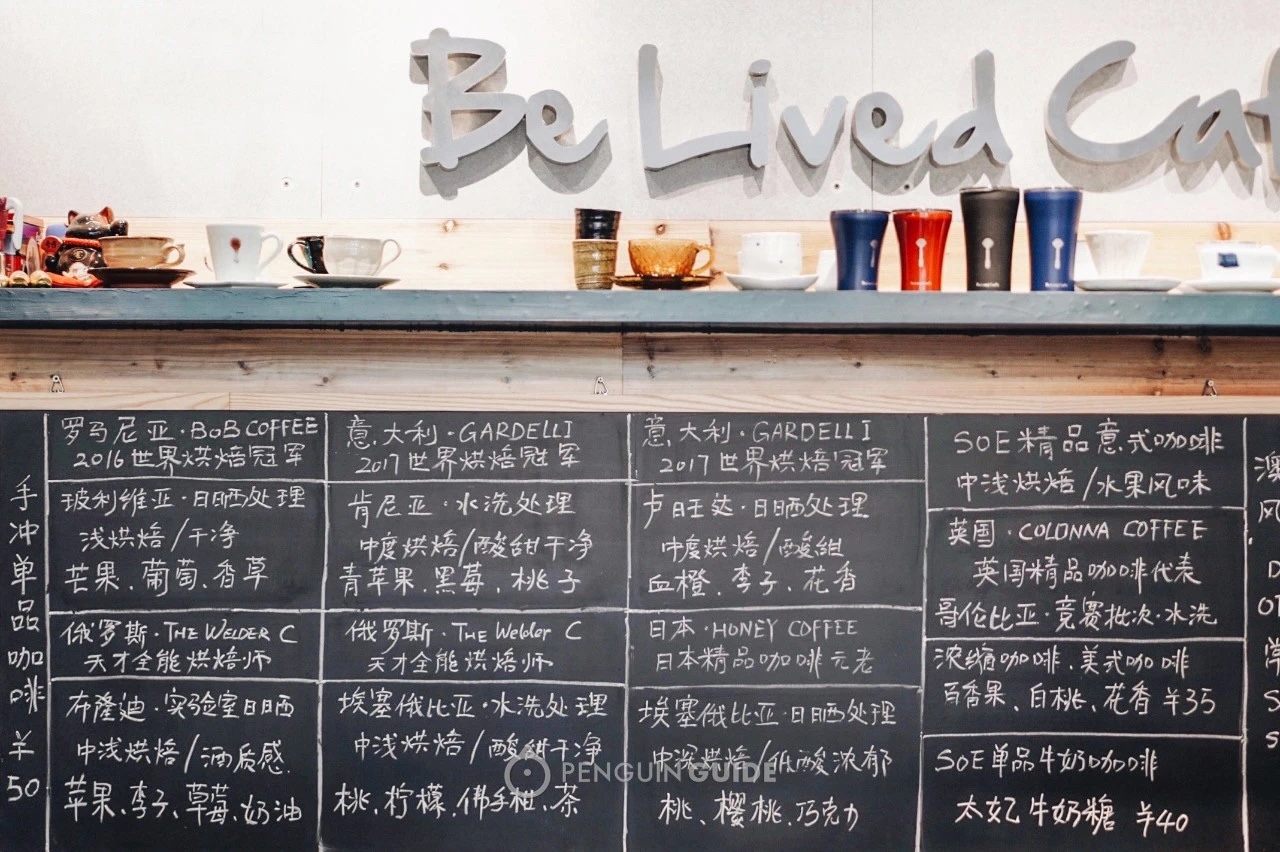 Be Lived Caf
手冲单品咖啡 ¥50
罗马尼亚·BOB COFFEE
2016世界烘焙冠军
玻利维亚·日晒处理
浅烘焙/干净
芒果、葡萄、香草
俄罗斯·THE WELDER C
天才全能烘焙师
布隆迪·实验室日晒
中浅烘焙/酒质感
苹果、李子、草莓、奶油
意大利·GARDELLI
2017世界烘焙冠军
肯尼亚·水洗处理
中度烘焙/酸甜干净
青苹果、黑莓、桃子
俄罗斯·THE Welder C
天才全能烘焙师
埃塞俄比亚·水洗处理
中浅烘焙/酸甜干净
桃、柠檬、佛手柑、茶
意大利·GARDELLI
2017世界烘焙冠军
卢旺达·日晒处理
中度烘焙/酸甜
血橙、李子、花香
日本·HONEY COFFEE
日本精品咖啡元老
埃塞俄比亚·日晒处理
中深烘焙/低酸浓郁
桃、樱桃、巧克力
SOE精品意式咖啡
中浅烘焙/水果风味
英国·COLONNA COFFEE
英国精品咖啡代表
哥伦比亚·竞赛批次·水洗
浓缩咖啡、美式咖啡
百香果、白桃、花香 ¥35
SOE单品牛奶咖啡
太妃牛奶糖 ¥40
澳
风
常
PENGUIN GUIDE